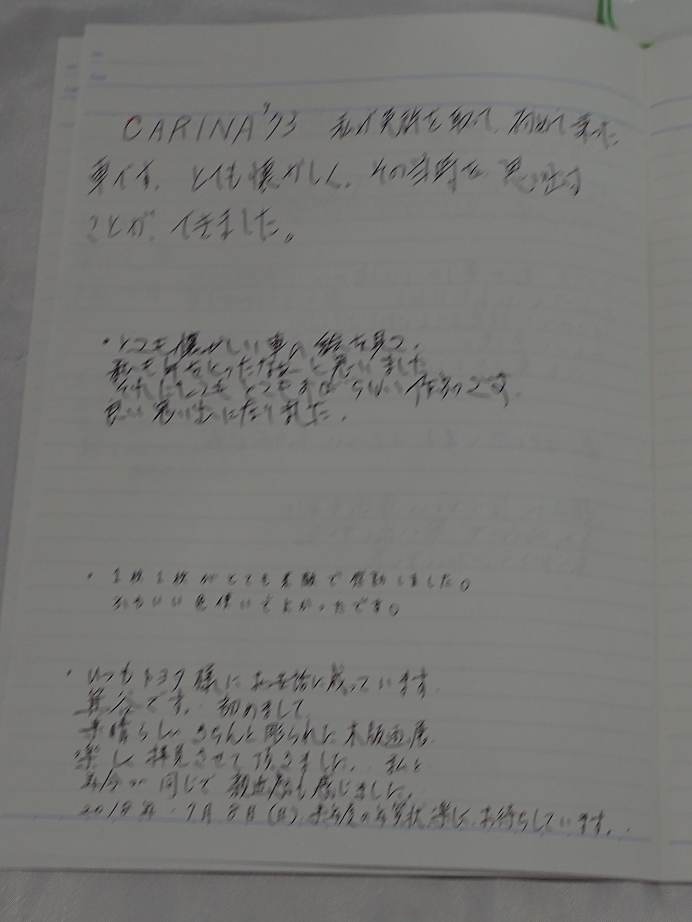 CARINA '73 私が免許を取って、初めて乗った
車です。とても懐かしく、その当時を思い出す
ことが、できました。
・とても懐かしい車の絵を見て、
私も年をとったなあと思いました
それにしてもとてもすばらしい作品です。
良い思い出になりました。
・1枚1枚がとても素敵で感動しました。
かわいい色使いもよかったです。
・いつもトヨタ様にお世話に成っています
です。初めまして
素晴らしいきちんと彫られた木版画展
楽しく拝見させて頂きました。私と
年令が同じで親近感も感じました。
2018年 7月8日(日)来年度の年賀状楽しくお待ちしています。